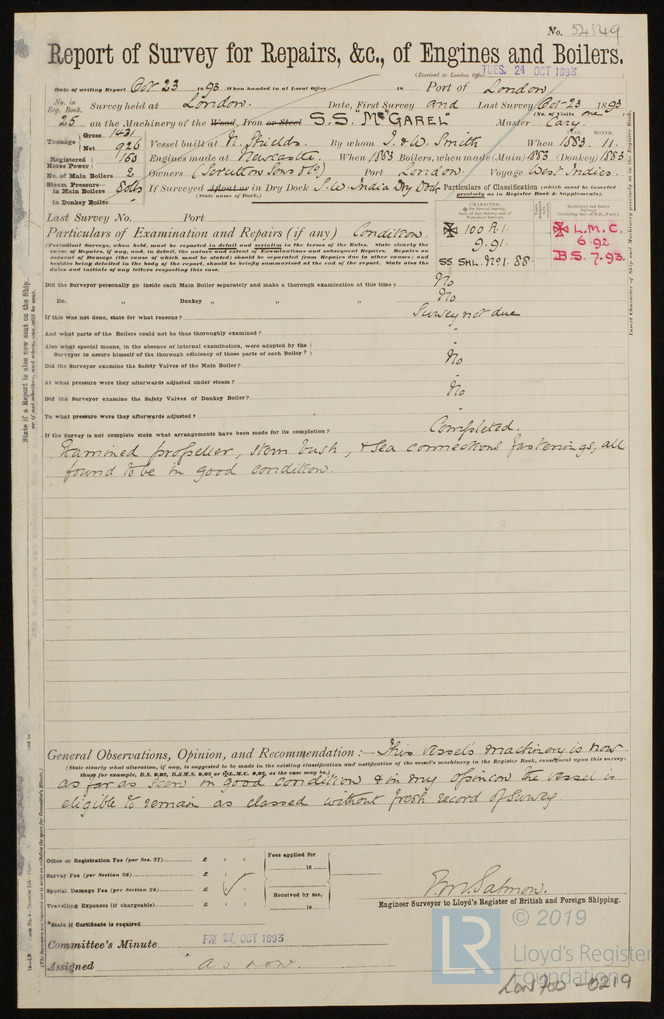 No. 54849
Report of Survey for Repairs, &c., of Engines and Boilers.
(Received at London Office TUES. 24 OCT 1893
Date of writing Report Oct 23 1893 When handed in at Local Office 18 Port of London
No. in Reg. Book. Survey held at London. Date, First Survey and Last Survey Oct 23 1893
(No. of Visits one)
25 on the Machinery of the Wood, Iron or Steel S.S. "McGAREL" Master Cary.
Tonnage Gross 1431 Net 926
Vessel built at N. Shields. By whom J. & W. Smith When 1883. 11.
YEAR. MONTH.
Registered Horse Power 160 Engines made at Newcastle. When 1883 Boilers, when made (Main) 1883 (Donkey) 1883
No. of Main Boilers 2 Owners (Scrutton Sons & Co.) Port London. Voyage West Indies.
Steam Pressure in Main Boilers 80lbs If Surveyed Afloat or in Dry Dock S.W. India Dry Dock
(State name of Dock.)
in Donkey Boiler
Particulars of Classification (which must be inserted precisely as in Register Book & Supplements).
Last Survey No. Port
CHARACTER.
Machinery and Boiler Surveys
Particulars of Examination and Repairs (if any) Condition.
100 A.1.
9.91.
SS. SHL. No 1. 88.
L.M.C.
6.92
B.S. 7.93.
(Periodical Surveys, when held, must be reported in detail and seriatim in the terms of the Rules. State clearly the cause of Repairs, if any, and, in detail, the nature and extent of Examinations and subsequent Repairs. Repairs on account of Damage (the cause of which must be stated) should be separated from Repairs due to other causes; and besides being detailed in the body of the report, should be briefly summarised at the end of the report. State also the dates and initials of any letters respecting this case.
Did the Surveyor personally go inside each Main Boiler separately and make a thorough examination at this time? No
Do. " Donkey " " " ? No
If this was not done, state for what reasons? Survey not due
And what parts of the Boilers could not be thus thoroughly examined? "
Also what special means, in the absence of internal examination, were adopted by the Surveyor to assure himself of the thorough efficiency of those parts of each Boiler? "
Did the Surveyor examine the Safety Valves of the Main Boiler? No
At what pressure were they afterwards adjusted under steam? "
Did the Surveyor examine the Safety Valves of Donkey Boiler? No
To what pressure were they afterwards adjusted? "
If the Survey is not complete state what arrangements have been made for its completion? Completed.
Examined propeller, stern bush, & sea connections fastenings, all
found to be in good condition.
General Observations, Opinion, and Recommendation:— This vessel's machinery is now
(State clearly what alteration, if any, is suggested to be made in the existing classification and notification of the vessel's machinery in the Register Book, consequent upon this survey:
thus for example, B.S. 9,92, B.&M.S. 9,92 or L.M.C. 9,92, as the case may be.)
as far as seen in good condition & in my opinion the vessel is
eligible to remain as classed without fresh record of survey.
Office or Registration Fee (per Sec. 27) £ : :
Survey Fee (per Section 28) £ : :
Special Damage Fee (per Section 28) £ : :
Travelling Expenses (if chargeable) £ : :
Fees applied for
18
Received by me,
18
State if Certificate is required
Engineer Surveyor to Lloyd's Register of British and Foreign Shipping.
Committee's Minute FRI 27 OCT 1893
Assigned as now.
State if a Report is also now sent on the Ship.
LR © 2019
Lloyd's Register
Foundation
Lon 700 - 0219